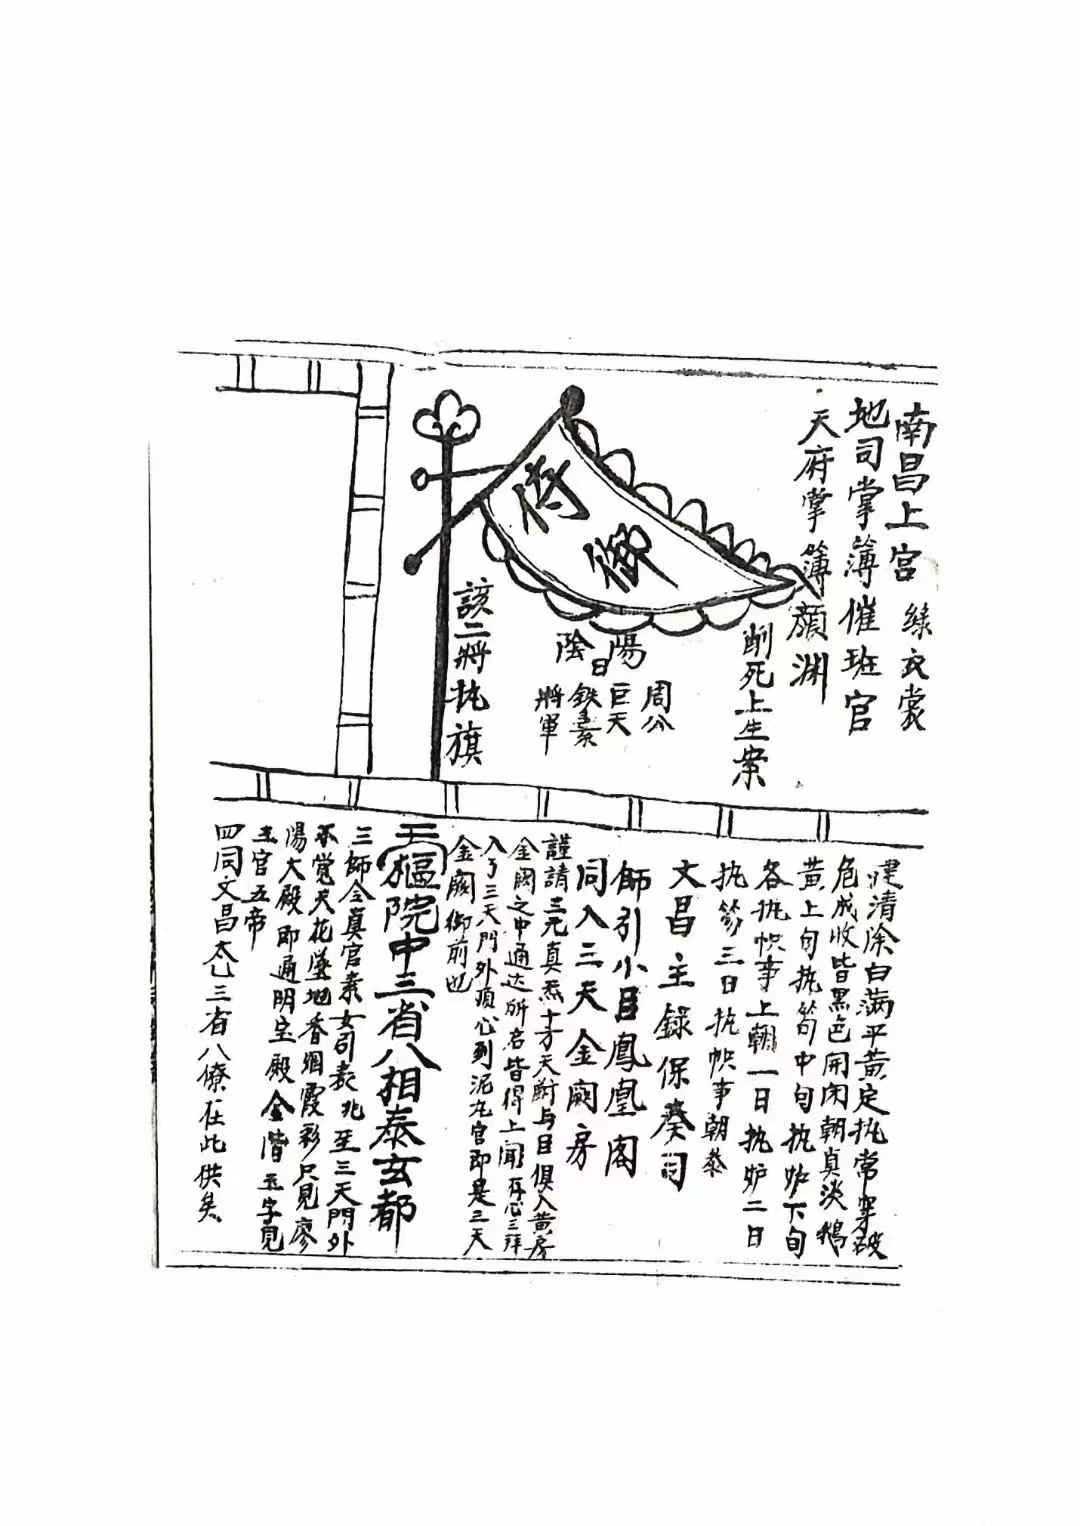 南昌上宮 綠衣裳
地司掌簿催班官
天府掌簿顏淵
削死上生案
侍御
陽
日
陰
周公
巨天
鉄素
將軍
該二將執旗
建清除白满平黄定执常穿破
危成收皆黑色開闭朝真淡鵝
黄上旬执笏中旬执炉下旬
各执帜事上朝一日执炉二日
执笏三日执帜事朝泰
文昌主錄保奏司
師引小目鳳凰阁
同入三天金阙房
謹請三元真炁十方天尉与目俱入黄房
金阙之中通达所名皆得上聞存心三拜
入了三天門外须心到泥丸宫即是三天
金阙御前也
三樞院中三省八相泰玄都
三師仝真官素女引表兆至三天門外
不覺天花墜地香烟霞彩只見廖
陽大殿即通明宝殿金階玉字見
玉官五帝
四同文昌太乙三省八僚在此供矣